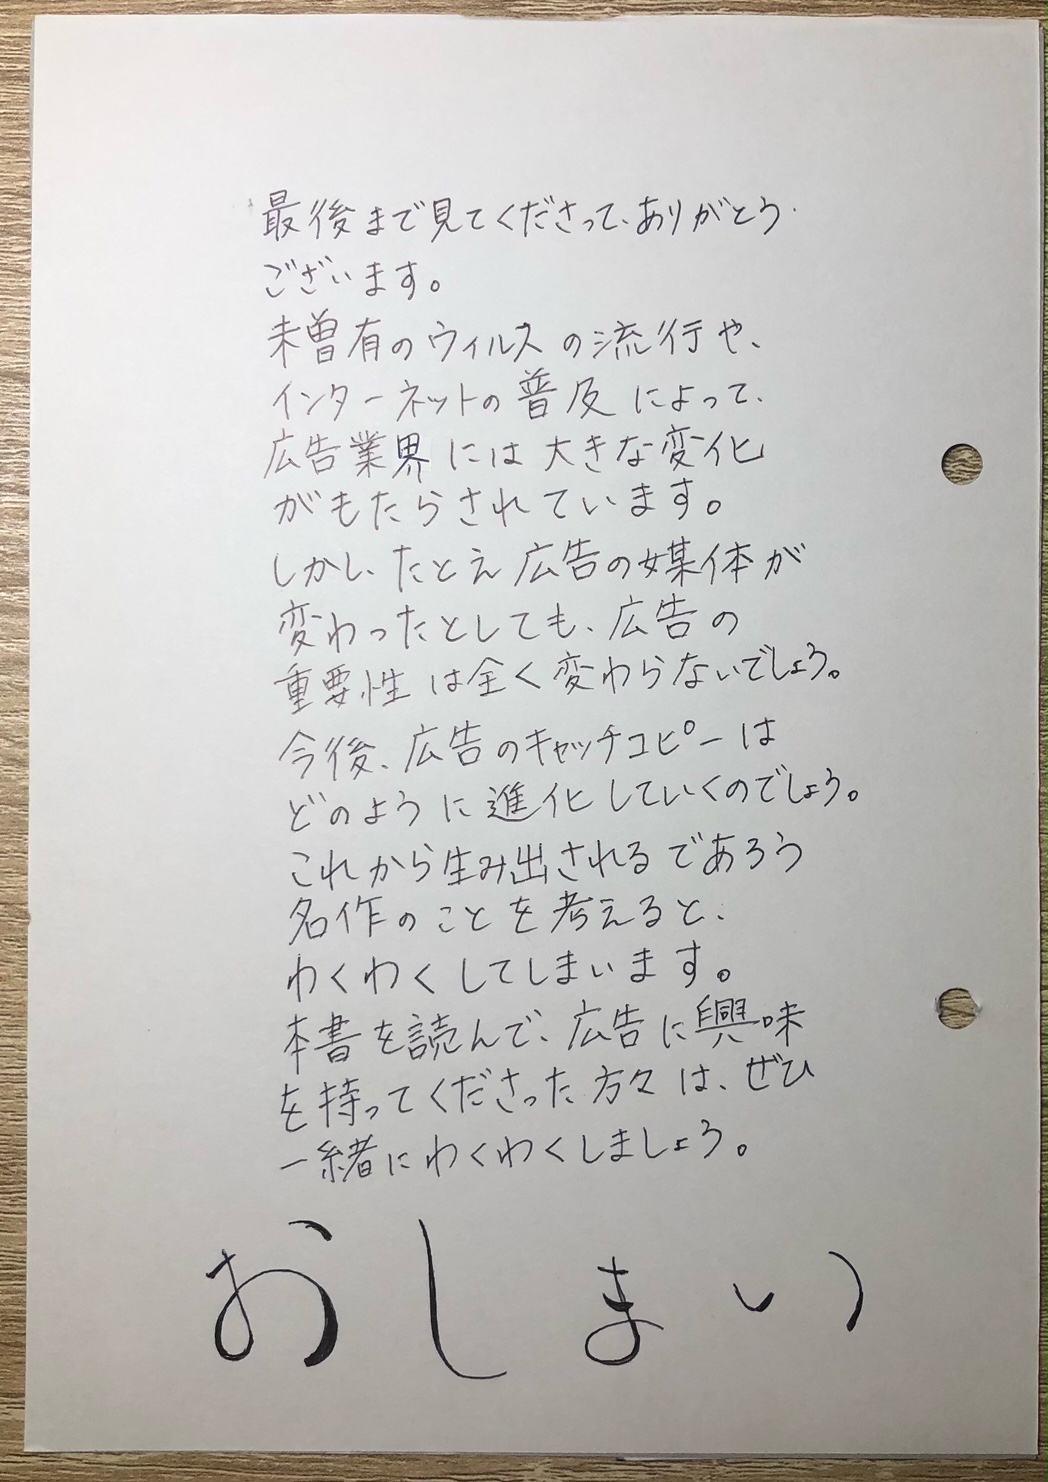 最後まで見てくださって、ありがとう
ございます。
未曽有のウィルスの流行や、
インターネットの普及によって、
広告業界には大きな変化
がもたらされています。
しかし、たとえ広告の媒体が
変わったとしても、広告の
重要性は全く変わらないでしょう。
今後、広告のキャッチコピーは
どのように進化していくのでしょう。
これから生み出されるであろう
名作のことを考えると、
わくわくしてしまいます。
本書を読んで、広告に興味
を持ってくださった方々は、ぜひ
一緒にわくわくしましょう。
おしまい